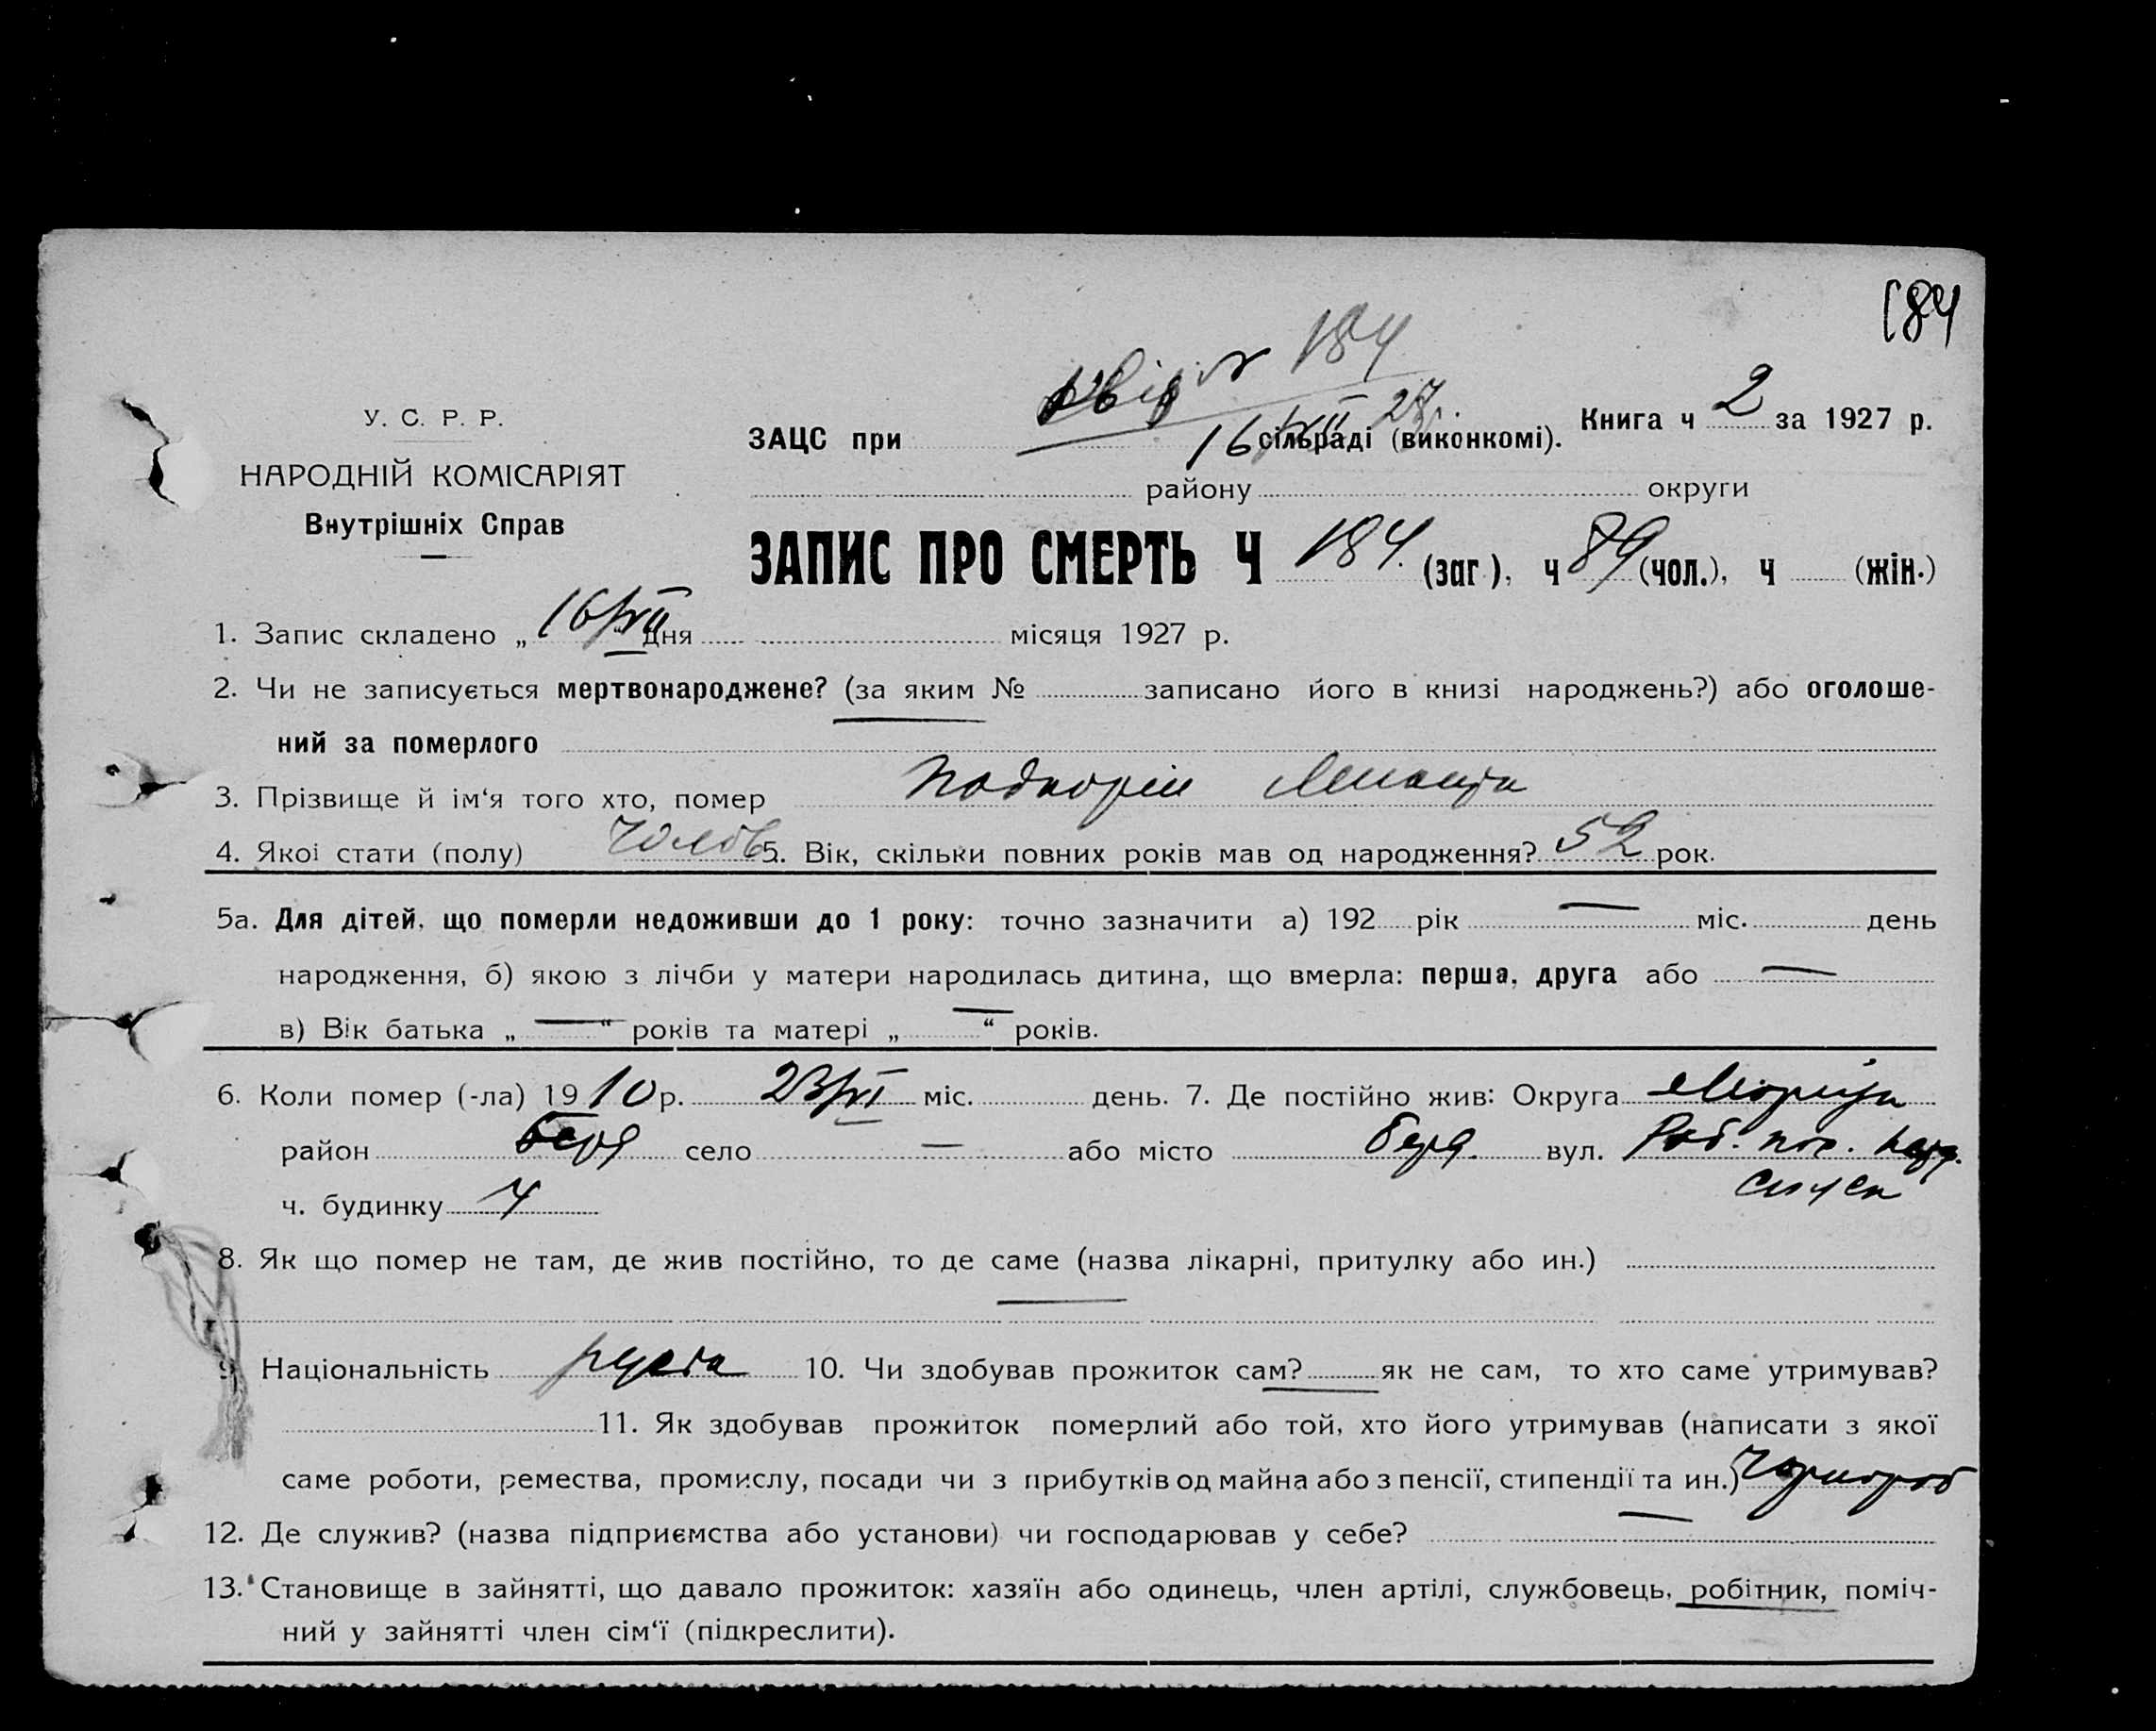 184
184
16/VII 27 г.
У. С. Р. Р.
НАРОДНІЙ КОМІСАРІЯТ
Внутрішніх Справ
Книга ч 2 за 1927 р.
ЗАЦС при сільраді (виконкомі).
району округи
ЗАПИС ПРО СМЕРТЬ Ч 184. (заг.), ч 89 (чол.), ч (жін.)
1. Запис складено „ 16/VII “ дня місяця 1927 р.
2. Чи не записується мертвонароджене? (за яким № записано його в книзі народжень?) або оголоше-
ний за померлого
3. Прізвище й ім‘я того хто, помер
4. Якої стати (полу) чолов 5. Вік, скільки повних років мав од народження? 52 рок.
5а. Для дітей, що померли недоживши до 1 року: точно зазначити а) 192 рік — міс. день
народження, б) якою з лічби у матери народилась дитина, що вмерла: перша, друга або —
в) Вік батька „ — “ років та матері „ — “ років.
6. Коли помер (-ла) 19 10 р. 23/VI міс. день. 7. Де постійно жив: Округа
район Берд село — або місто Берд. вул.
ч. будинку 4
8. Як що помер не там, де жив постійно, то де саме (назва лікарні, притулку або ин.)
—
9. Національність 10. Чи здобував прожиток сам? як не сам, то хто саме утримував?
11. Як здобував прожиток померлий або той, хто його утримував (написати з якої
саме роботи, ремества, промислу, посади чи з прибутків од майна або з пенсії, стипендії та ин.) Чорнороб
12. Де служив? (назва підприємства або установи) чи господарював у себе? —
13. Становище в зайнятті, що давало прожиток: хазяїн або одинець, член артілі, службовець, робітник, поміч-
ний у зайнятті член сім‘ї (підкреслити).